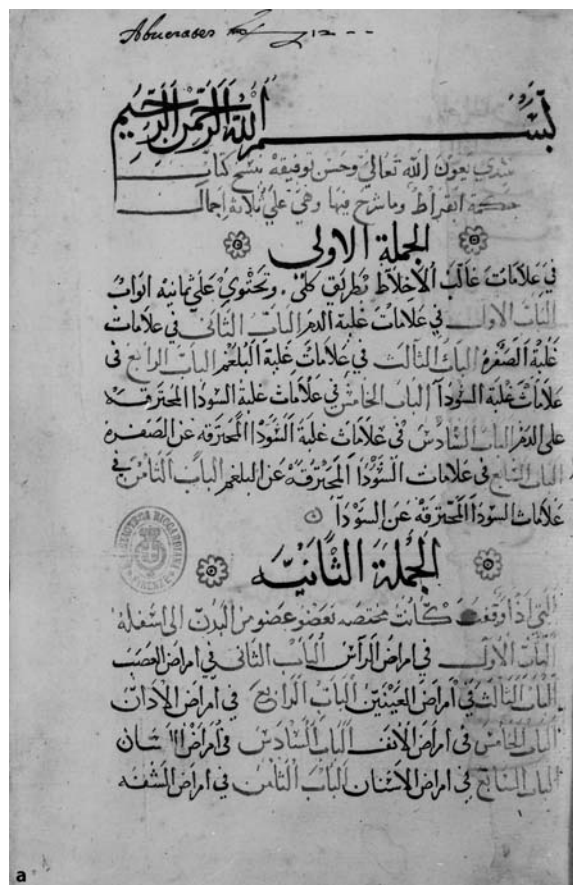 Abucrates
بسم الله الرحمن الرحيم
نبتدي بعون الله تعالى وحسن توفيقه بنسخ كتاب
حكمة ابقراط وما شرح فيها وهي على ثلاثة اجمال
الجملة الاولى
في علامات غالب الاخلاط بطريق كلي . وتحتوي على ثمانيه ابواب
الباب الاول في علامات غلبة الدم الباب الثاني في علامات
غلبة الصفره الباب الثالث في علامات غلبة البلغم الباب الرابع في
علامات غلبة السودآ الباب الخامس في علامات غلبة السودا المحترقه
على الدم الباب السادس في علامات غلبة السودا المحترقه عن الصفره
الباب السابع في علامات السودا المحترقه عن البلغم الباب الثامن في
علامات السودا المحترقه عن السودآ
الجملة الثانيه
التي اذا وقعت كانت مختصه بعضو عضو من البدن الى اسفله
الباب الاول في امراض الراس الباب الثاني في امراض العصب
الباب الثالث في امراض العينين الباب الرابع في امراض الادان
الباب الخامس في امراض الانف الباب السادس في امراض اللسان
الباب السابع في امراض الاسنان الباب الثامن في امراض الشفه
BIBLIOTECA RICCARDIANA FIRENZE
a